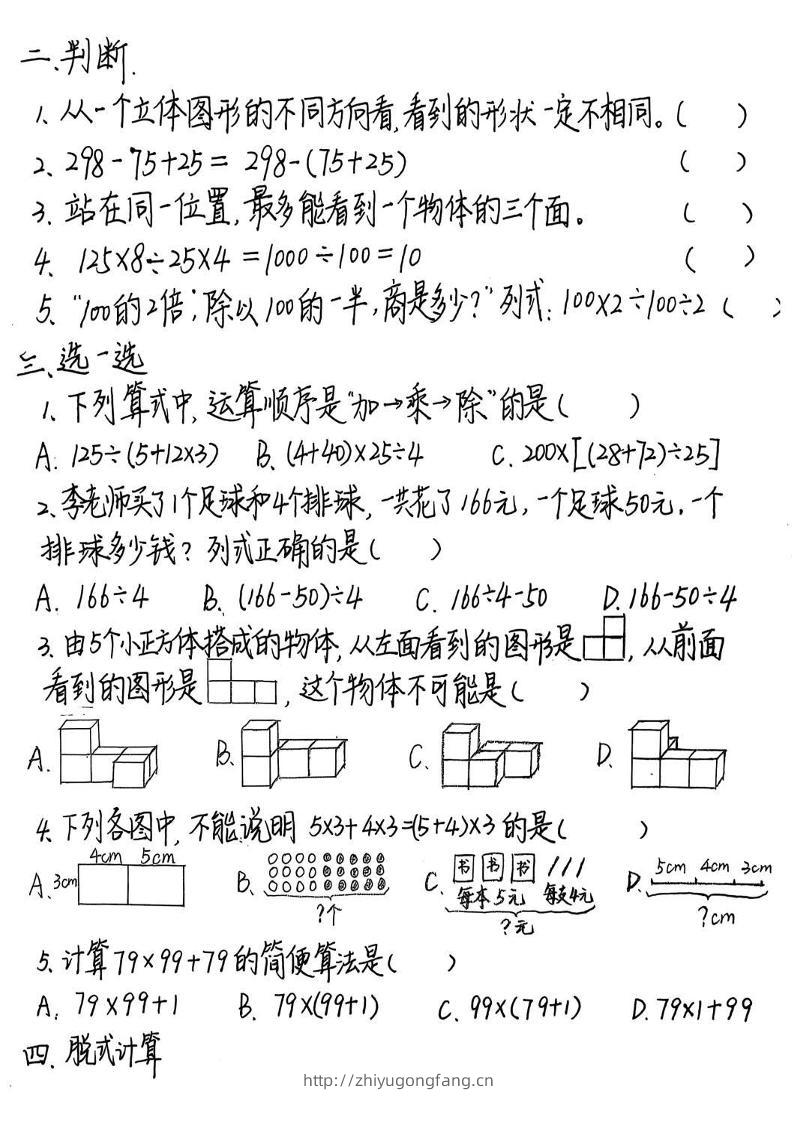 二、判断.
1、从一个立体图形的不同方向看,看到的形状一定不相同。(    )
2、298-75+25= 298-(75+25)    (    )
3、站在同一位置,最多能看到一个物体的三个面。    (    )
4、125×8÷25×4 =1000÷100=10    (    )
5、“100的2倍,除以100的一半,商是多少?”列式:100×2÷100÷2 (    )
三、选一选
1、下列算式中,运算顺序是“加→乘→除”的是(    )
A. 125÷(5+12×3)    B. (4+40)×25÷4    C. 200×[(28+72)÷25]
2、李老师买了1个足球和4个排球,一共花了166元,一个足球50元.一个
排球多少钱?列式正确的是(    )
A. 166÷4    B. (166-50)÷4    C. 166÷4-50    D. 166-50÷4
3、由5个小正方体搭成的物体,从左面看到的图形是,从前面
看到的图形是,这个物体不可能是(    )
A.    B.    C.    D.
4、下列各图中,不能说明 5×3+4×3=(5+4)×3 的是(    )
A. 3cm 4cm 5cm    B. ?个    C. 书 书 书 每本5元 每支4元 ?元    D. 5cm 4cm 3cm ?cm
5、计算79×99+79的简便算法是(    )
A. 79×99+1    B. 79×(99+1)    C. 99×(79+1)    D. 79×1+99
四、脱式计算
http://zhiyugongfang.cn